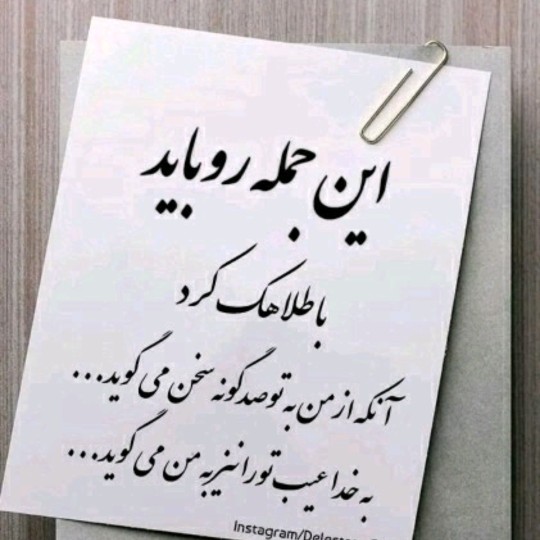 این جمله رو باید
با طلا هک کرد
آنکه از من به تو صد گونه سخن می گوید...
به خدا عیب تو را نیز به من می گوید...
Instagram/